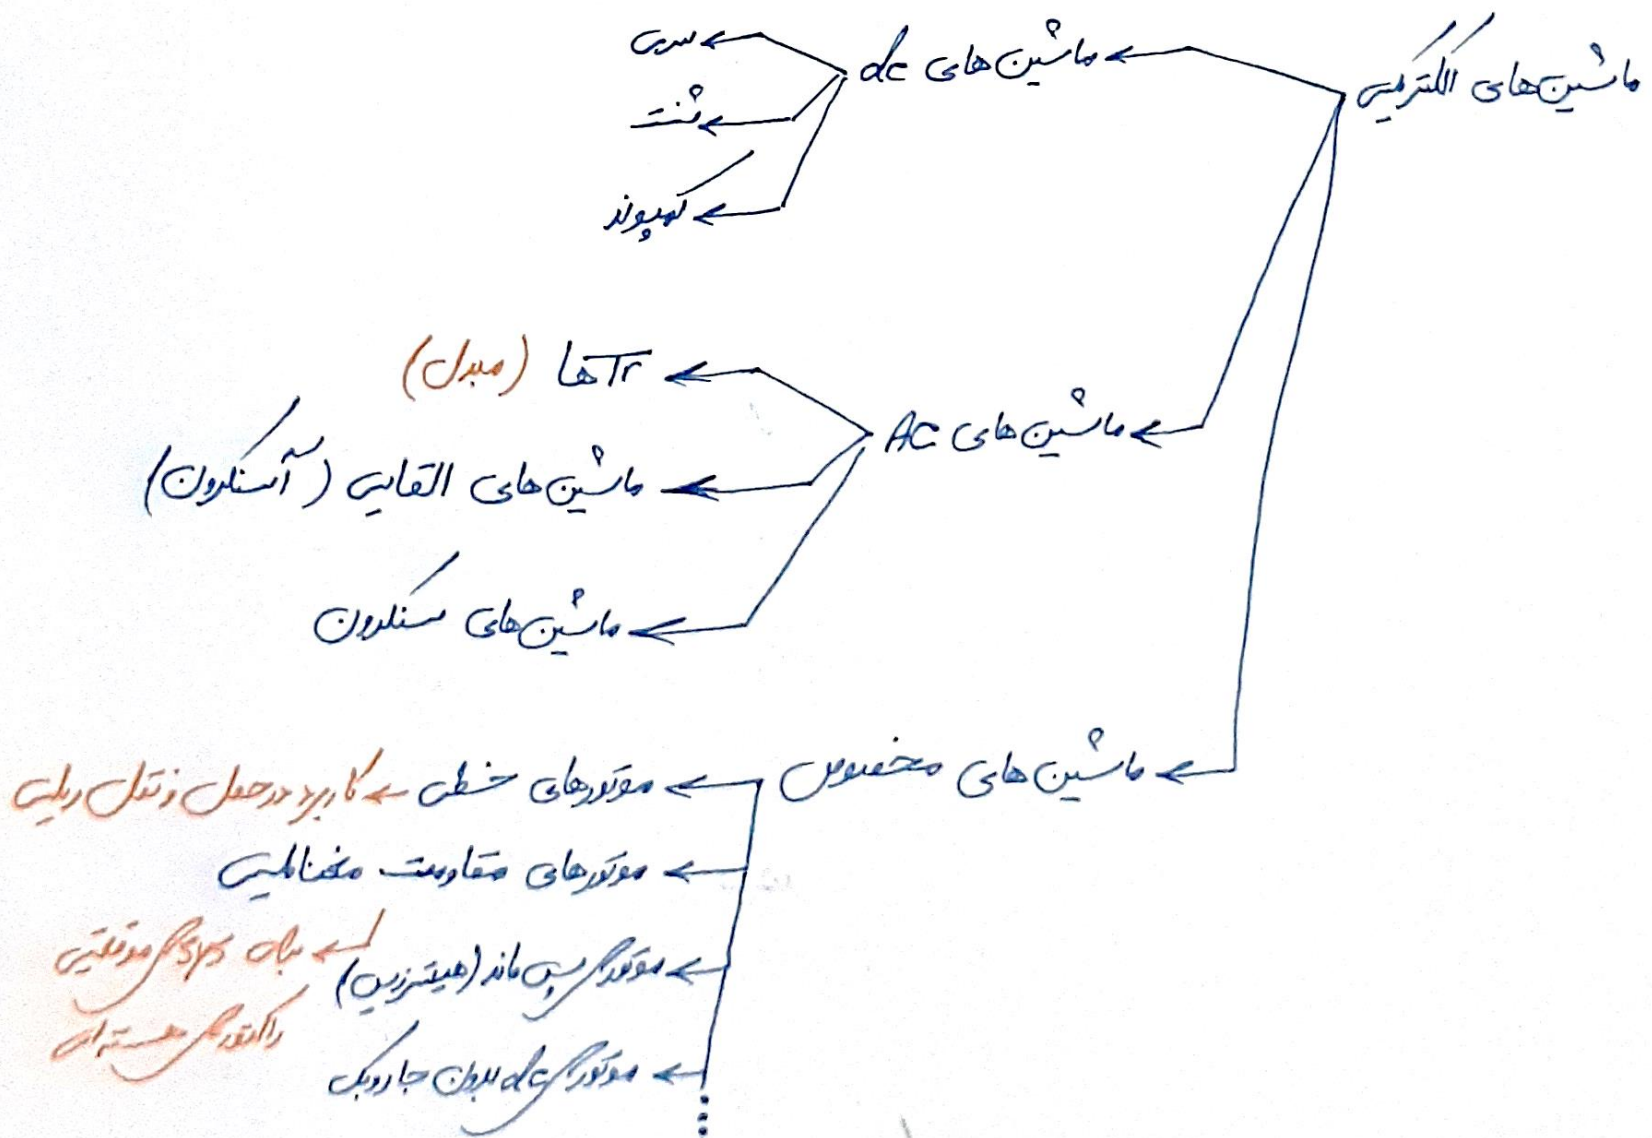 ماشین‌های الکتریکی
ماشین های dc
سری
شنت
کمپوند
ماشین های AC
Tr ها (مبدل)
ماشین های القایی (آسنکرون)
ماشین های سنکرون
ماشین های مخصوص
موتورهای خطی ← کاربرد در حمل و نقل ریلی
موتورهای مقاومت مغناطیسی
موتورهای پس ماند (هیسترزیس)
موقعیتی
راکتورهای هسته ای
موتورهای dc بدون جاروبک